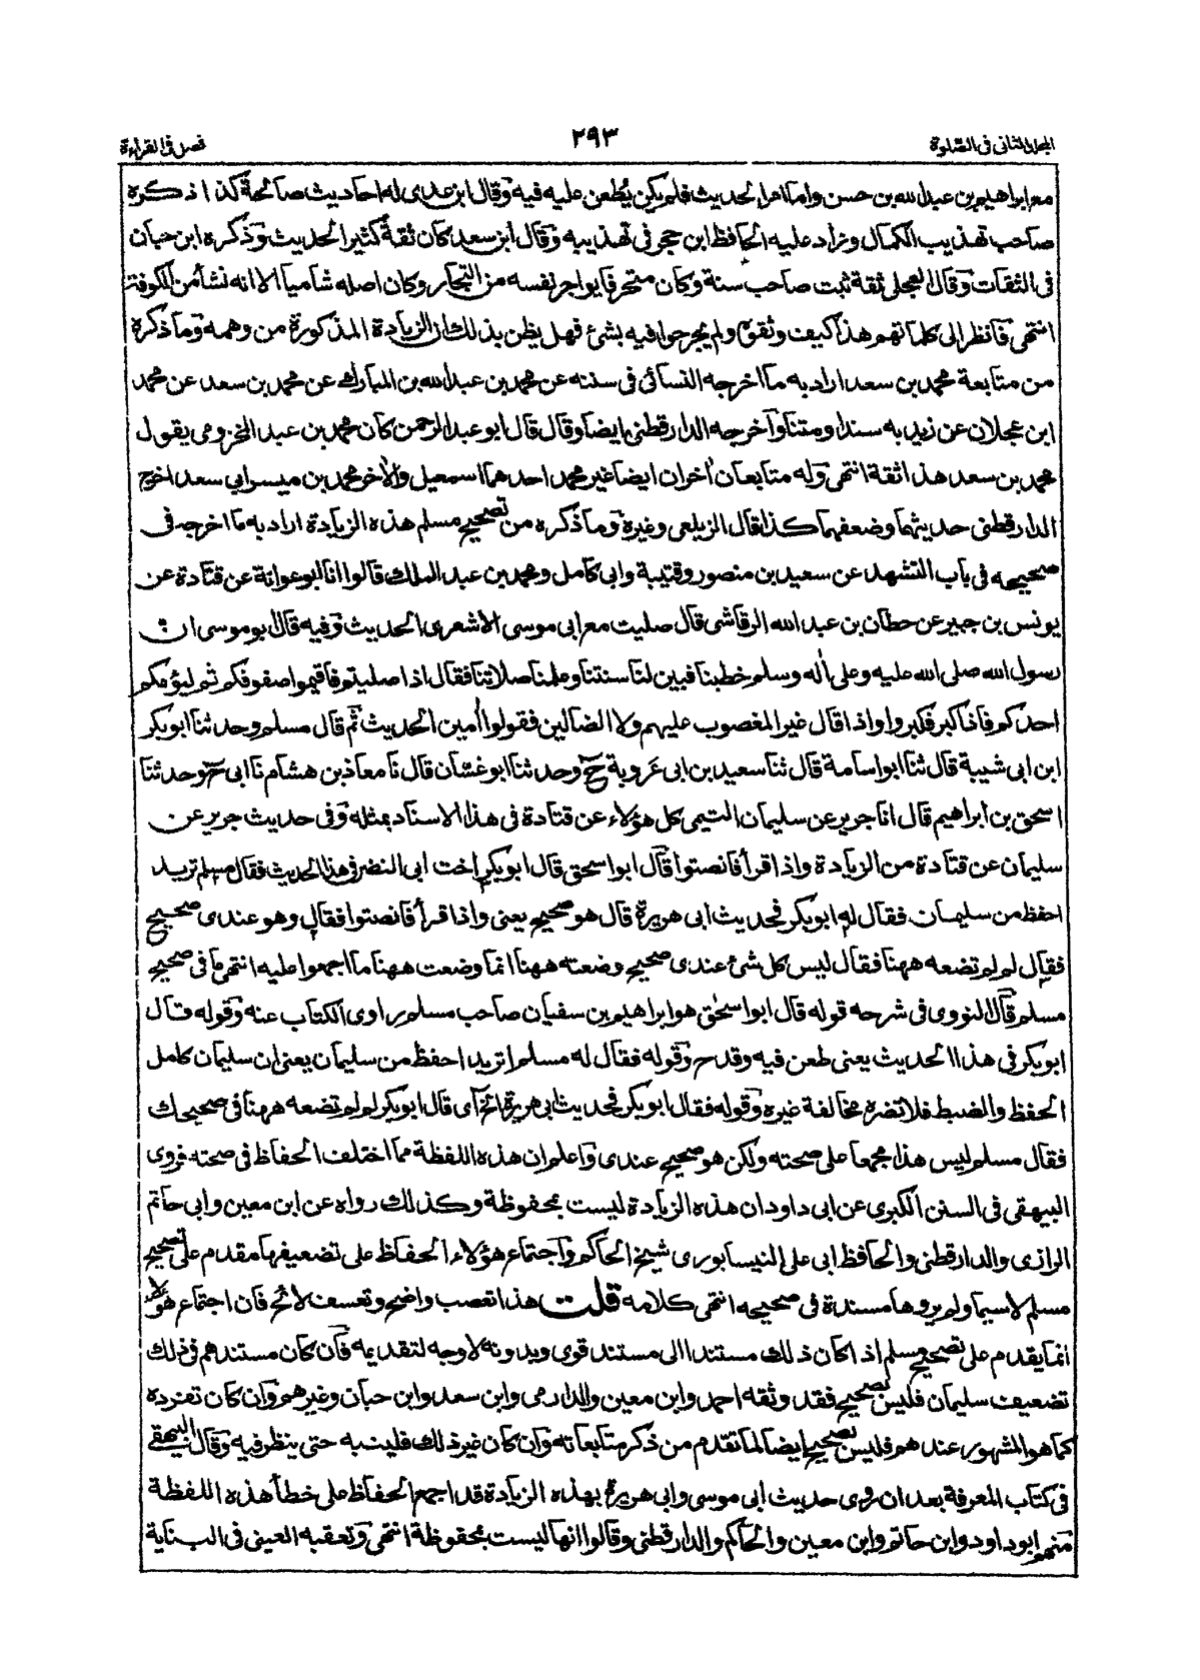 المجلد الثانى فى الصلوة
٢٩٣
فصل فى القراءة
مع ابراهيم بن عبد الله بن حسن واما امر الحديث فلم يكن يطعن عليه فيه وقال ابن عدى له احاديث صالحة كذا ذكره
صاحب تهذيب الكمال وزاد عليه الحافظ ابن حجر فى تهذيبه وقال ابن سعد كان ثقة كثير الحديث وذكره ابن حبان
فى الثقات وقال العجلى ثقة ثبت صاحب سنة وكان متحرفا يواجر نفسه من التجار وكان اصله شاميا الا انه نشأ من الكوفة
انتهى فانظر الى كلماتهم هذا كيف وثقوه ولم يجرحوا فيه بشئ فهل يظن بذلك ان الزيادة المذكورة من وهمه وما ذكره
من متابعة محمد بن سعد اراد به ما اخرجه النسائى فى سننه عن محمد بن عبد الله بن المبارك عن محمد بن سعد عن محمد
ابن عجلان عن زيد به سندا ومتنا واخرجه الدارقطنى ايضا وقال قال ابو عبد الرحمن كان محمد بن عبد المخزومى يقول
محمد بن سعد هذا ثقة انتهى وله متابعان اخران ايضا غير محمد احدهما اسمعيل والاخر محمد بن ميسر ابى سعد اخرج
الدارقطنى حديثهما وضعفهما كذا قال الزيلعى وغيره وما ذكره من تصحيح مسلم هذه الزيادة اراد به ما اخرجه فى
صحيحه فى باب التشهد عن سعيد بن منصور وقتيبة وابى كامل ومحمد بن عبد الملك قالوا انا ابو عوانة عن قتادة عن
يونس بن جبير عن حطان بن عبد الله الرقاشى قال صليت مع ابى موسى الاشعرى الحديث وفيه قال ابو موسى ان
رسول الله صلى الله عليه وعلى اله وسلم خطبنا فبين لنا سنتنا وعلمنا صلاتنا فقال اذا صليتم فاقيموا صفوفكم ثم ليؤمكم
احدكم فاذا كبر فكبروا واذا قال غير المغضوب عليهم ولا الضالين فقولوا آمين الحديث ثم قال مسلم وحدثنا ابو بكر
ابن ابى شيبة قال ثنا ابو اسامة قال ثنا سعيد بن ابى عروبة ح وحدثنا ابو غسان قال نا معاذ بن هشام نا ابى ح وحدثنا
اسحق بن ابراهيم قال انا جرير عن سليمان التيمى كل هؤلاء عن قتادة فى هذا الاسناد بمثله وفى حديث جرير عن
سليمان عن قتادة من الزيادة واذا قرأ فانصتوا قال ابو اسحق قال ابو بكر اخت ابى النضر فى هذا الحديث فقال مسلم تريد
احفظ من سليمان فقال له ابو بكر فحديث ابى هريرة قال هو صحيح يعنى واذا قرأ فانصتوا فقال وهو عندى صحيح
فقال لم لم تضعه ههنا فقال ليس كل شئ عندى صحيح وضعته ههنا انما وضعت ههنا ما اجمعوا عليه انتهى ما فى صحيح
مسلم قال النووى فى شرحه قوله قال ابو اسحق هو ابراهيم بن سفيان صاحب مسلم راوى الكتاب عنه وقوله قال
ابو بكر فى هذا الحديث يعنى طعن فيه وقدح وقوله فقال له مسلم اتريد احفظ من سليمان يعنى ان سليمان كامل
الحفظ والضبط فلا تضره مخالفة غيره وقوله فقال ابو بكر فحديث ابى هريرة الخ اى قال ابو بكر لم لم تضعه ههنا فى صحيحك
فقال مسلم ليس هذا مجمعا على صحته ولكن هو صحيح عندى واعلم ان هذه اللفظة مما اختلف الحفاظ فى صحته فروى
البيهقى فى السنن الكبرى عن ابى داود ان هذه الزيادة ليست بمحفوظة وكذلك رواه عن ابن معين وابى حاتم
الرازى والدارقطنى والحافظ ابى على النيسابورى شيخ الحاكم واجتماع هؤلاء الحفاظ على تضعيفها مقدم على تصحيح
مسلم لا سيما ولم يروها مسندة فى صحيحه انتهى كلامه قلت هذا تعصب واضح وتعسف لائح فان اجتماع هؤلاء
انما يقدم على تصحيح مسلم اذا كان ذلك مستندا الى مستند قوى وبدونه لا وجه لتقديمه فان كان مستندهم فى ذلك
تضعيف سليمان فليس بصحيح فقد وثقه احمد وابن معين والدارمى وابن سعد وابن حبان وغيرهم وان كان تفرده
كما هو المشهور عندهم فليس بصحيح ايضا لما تقدم من ذكر متابعاته وان كان غير ذلك فلينبه حتى ينظر فيه وقال البيهقى
فى كتاب المعرفة بعد ان روى حديث ابى موسى وابى هريرة بهذه الزيادة قد اجمع الحفاظ على خطأ هذه اللفظة
منهم ابو داود وابن حاتم وابن معين والحاكم والدارقطنى وقالوا انها ليست بمحفوظة انتهى وتعقبه العينى فى البناية